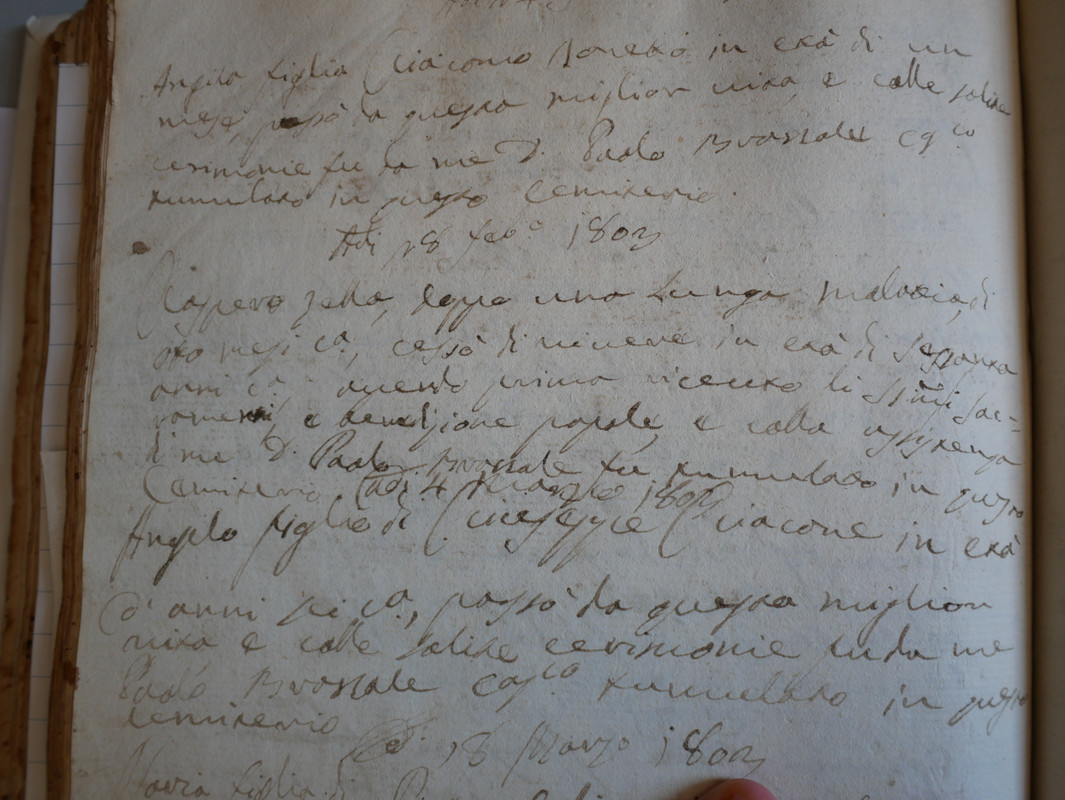 Angela figlia Giacomo Bonetto in età di un
mese, passò da questa miglior vita, e colle solite
cerimonie fu da me D. Paolo Brossale
tumulato in questo Cemiterio.
Adi 18 feb.o 1802
Gaspero Zella, doppo una lunga malatia, di
otto mesi c.a, cessò di vivere in età di sessanta
anni c.a avendo prima ricevuto li Ss.mi Sac=
ramenti, e benedizione papale, e colla assistenza
di me D. Paolo Brossale fu tumulato in questo
Cemiterio. Adi 4 Marzo 1802
Angelo figlio di Giuseppe Giacone in età
d'anni sei c.a, passò da questa miglior
vita e colle solite cerimonie fu da me
Paolo Brossale tumulato in questo
Cemiterio
18 Marzo 1802
Maria figlia di